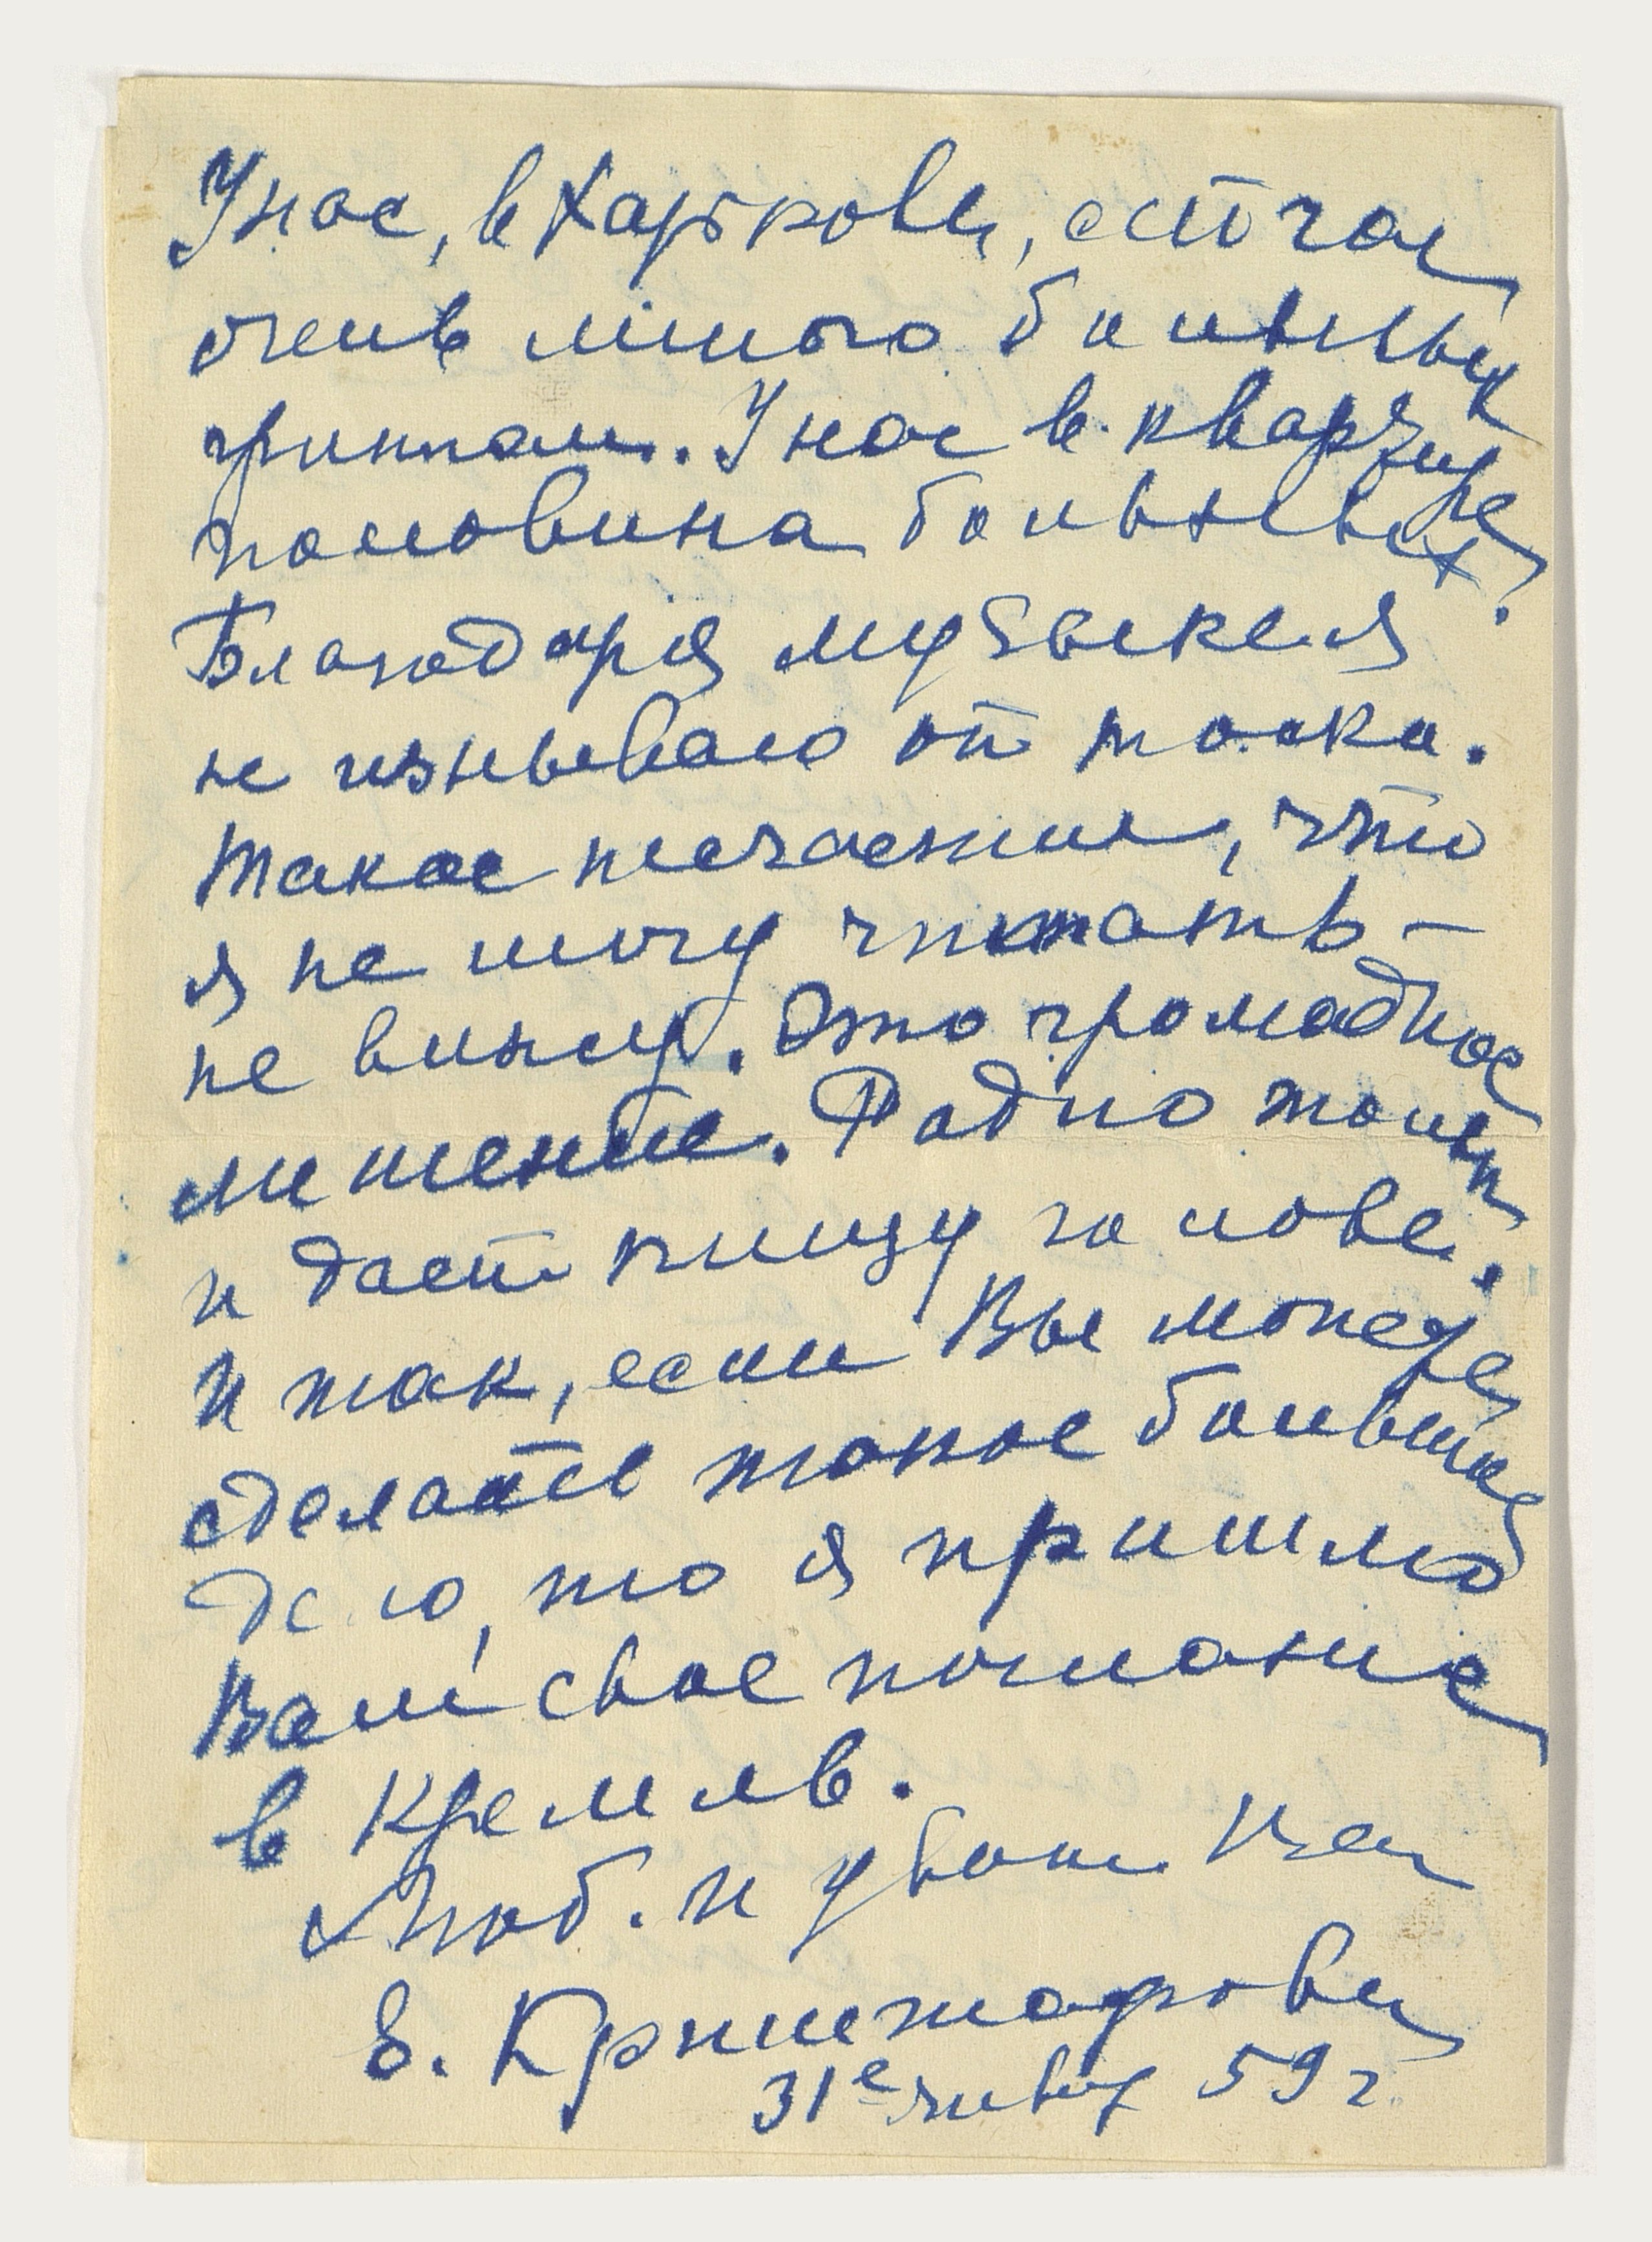 У нас, в Харькове, сейчас
очень много больных
гриппом. У нас в квартире
половина больных.
Благодаря музыке я
не изнываю от тоски.
Такое несчастие, что
я не могу читать –
не вижу. Это громадное
лишение. Радио только
и дает пищу голове.
И так, если Вы можете
сделать такое большое
дело, то я пришлю
Вам свое послание
в Кремль.
Люб. и уваж. Вас
Е. Криштофович
31е янв 59 г